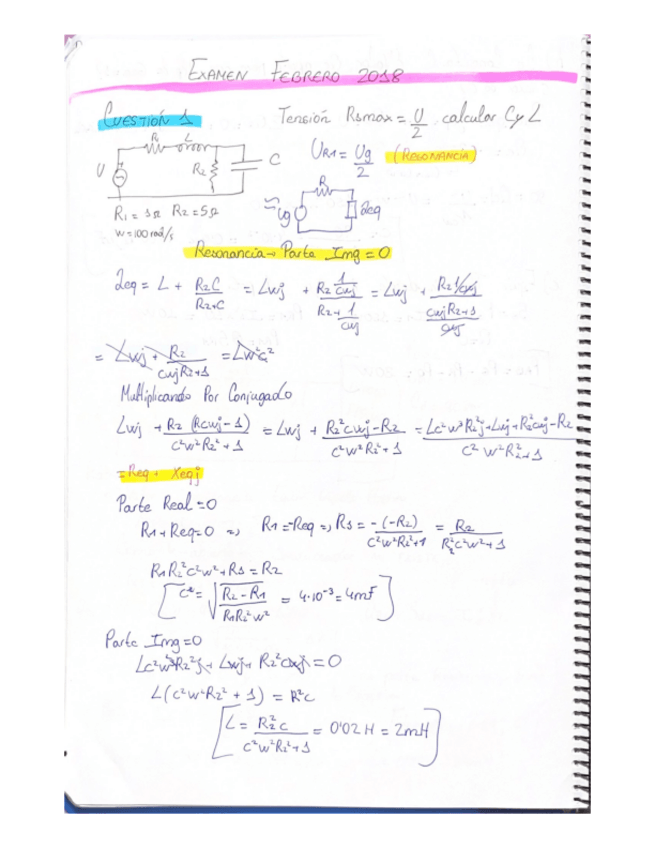 EXAMEN FEBRERO 2018
CUESTIÓN 1 Tensión R1max = U/2 calcular C y L
R L
U R2 C
UR1 = Ug/2 (RESONANCIA)
R
Ug Zeq
R1 = 1Ω R2 = 5Ω
W = 100 rad/s
Resonancia → Parte Img = 0
Zeq = L + R2C/(R2+C) = Lwj + (R2 1/cwj)/(R2 + 1/cwj) = Lwj + (R2 1/cwj)/((cwjR2+1)/cwj)
= Lwj + R2/(cwjR2+1) =
Multiplicando Por Conjugado
Lwj + R2 (R2cwj-1)/(c²w²R2²+1) = Lwj + (R2²cwj-R2)/(c²w²R2²+1) = (Lc²w³R2²j+Lwj+R2²cwj-R2)/(c²w²R2²+1)
= Req + Xeqj
Parte Real = 0
R1 + Req = 0 ⇒ R1 = -Req ⇒ R1 = -(-R2)/(c²w²R2²+1) = R2/(R2²c²w²+1)
R1R2²c²w² + R1 = R2
[ C = √((R2-R1)/(R1R2²w²)) = 4·10⁻³ = 4mF ]
Parte Img = 0
Lc²w³R2²j + Lwj + R2²cwj = 0
L(c²w²R2² + 1) = R²c
[ L = R2²c/(c²w²R2²+1) = 0'02 H = 2mH ]